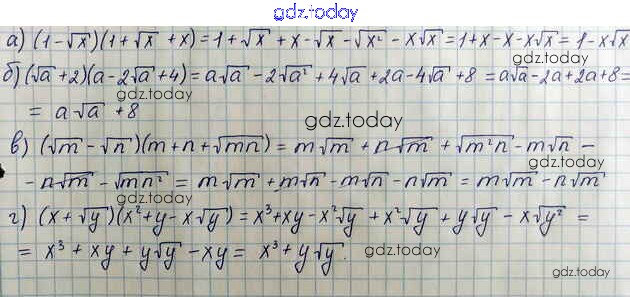 gdz.today
а) (1-√x)(1+√x + x) = 1+√x + x - √x - √x² - x√x = 1+x-x-x√x = 1-x√x
б) (√a +2)(a-2√a +4) = a√a - 2√a² + 4√a + 2a - 4√a + 8 = a√a - 2a + 2a + 8 =
gdz.today gdz.today
= a√a + 8
gdz.today
в) (√m - √n)(m + n + √mn) = m√m + n√m + √m²n - m√n -
gdz.today
- n√m - √mn² = m√m + m√n - m√n - n√m = m√m - n√m
г) (x + √y)(x² + y - x√y) = x³ + xy - x²√y + x²√y + y√y - x√y² =
= x³ + xy + y√y - xy = x³ + y√y.
gdz.today
gdz.today